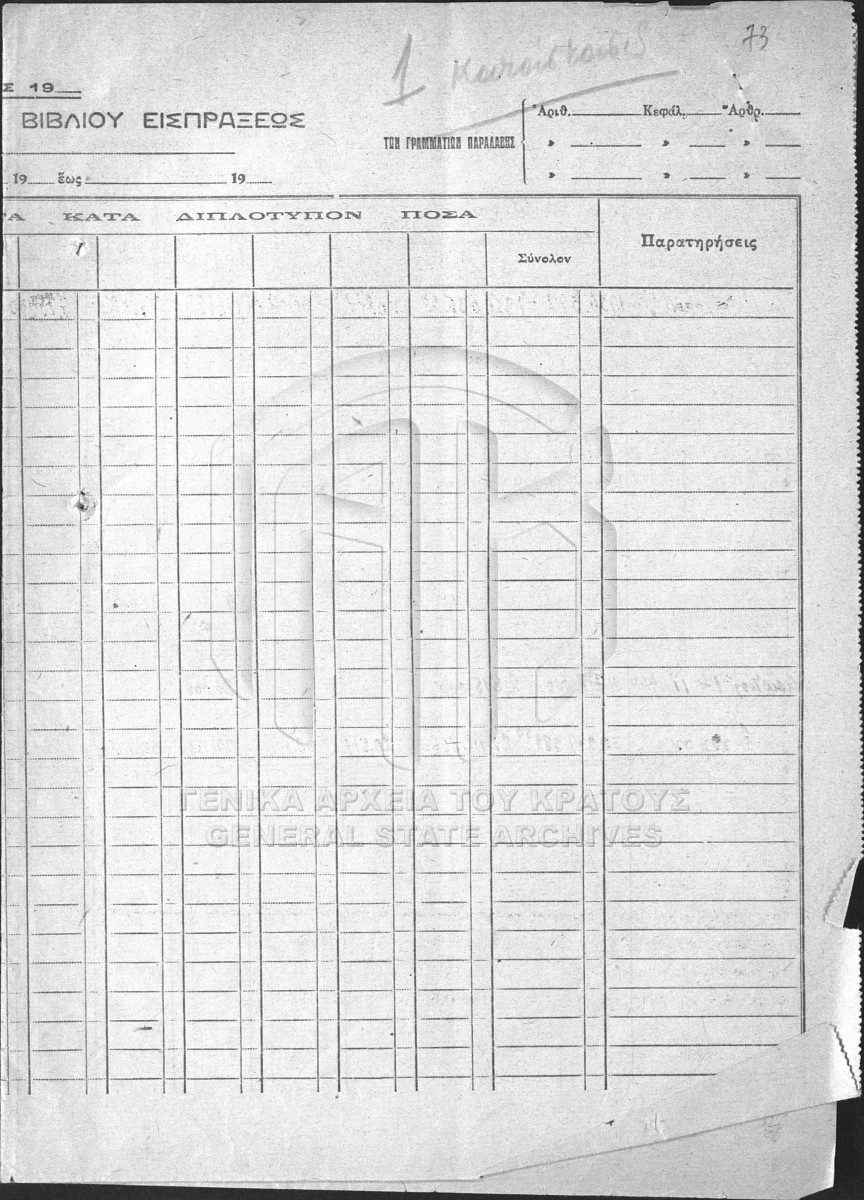 73
1 Κατάστασις
Σ 19
ΒΙΒΛΙΟΥ ΕΙΣΠΡΑΞΕΩΣ
ΤΩΝ ΓΡΑΜΜΑΤΙΩΝ ΠΑΡΑΛΑΒΗΣ
Ἀριθ. Κεφάλ. Ἄρθρ.
» » »
» » »
19 ἕως 19
ΤΑ ΚΑΤΑ ΔΙΠΛΟΤΥΠΟΝ ΠΟΣΑ
Παρατηρήσεις
Σύνολον
ΓΕΝΙΚΑ ΑΡΧΕΙΑ ΤΟΥ ΚΡΑΤΟΥΣ
GENERAL STATE ARCHIVES